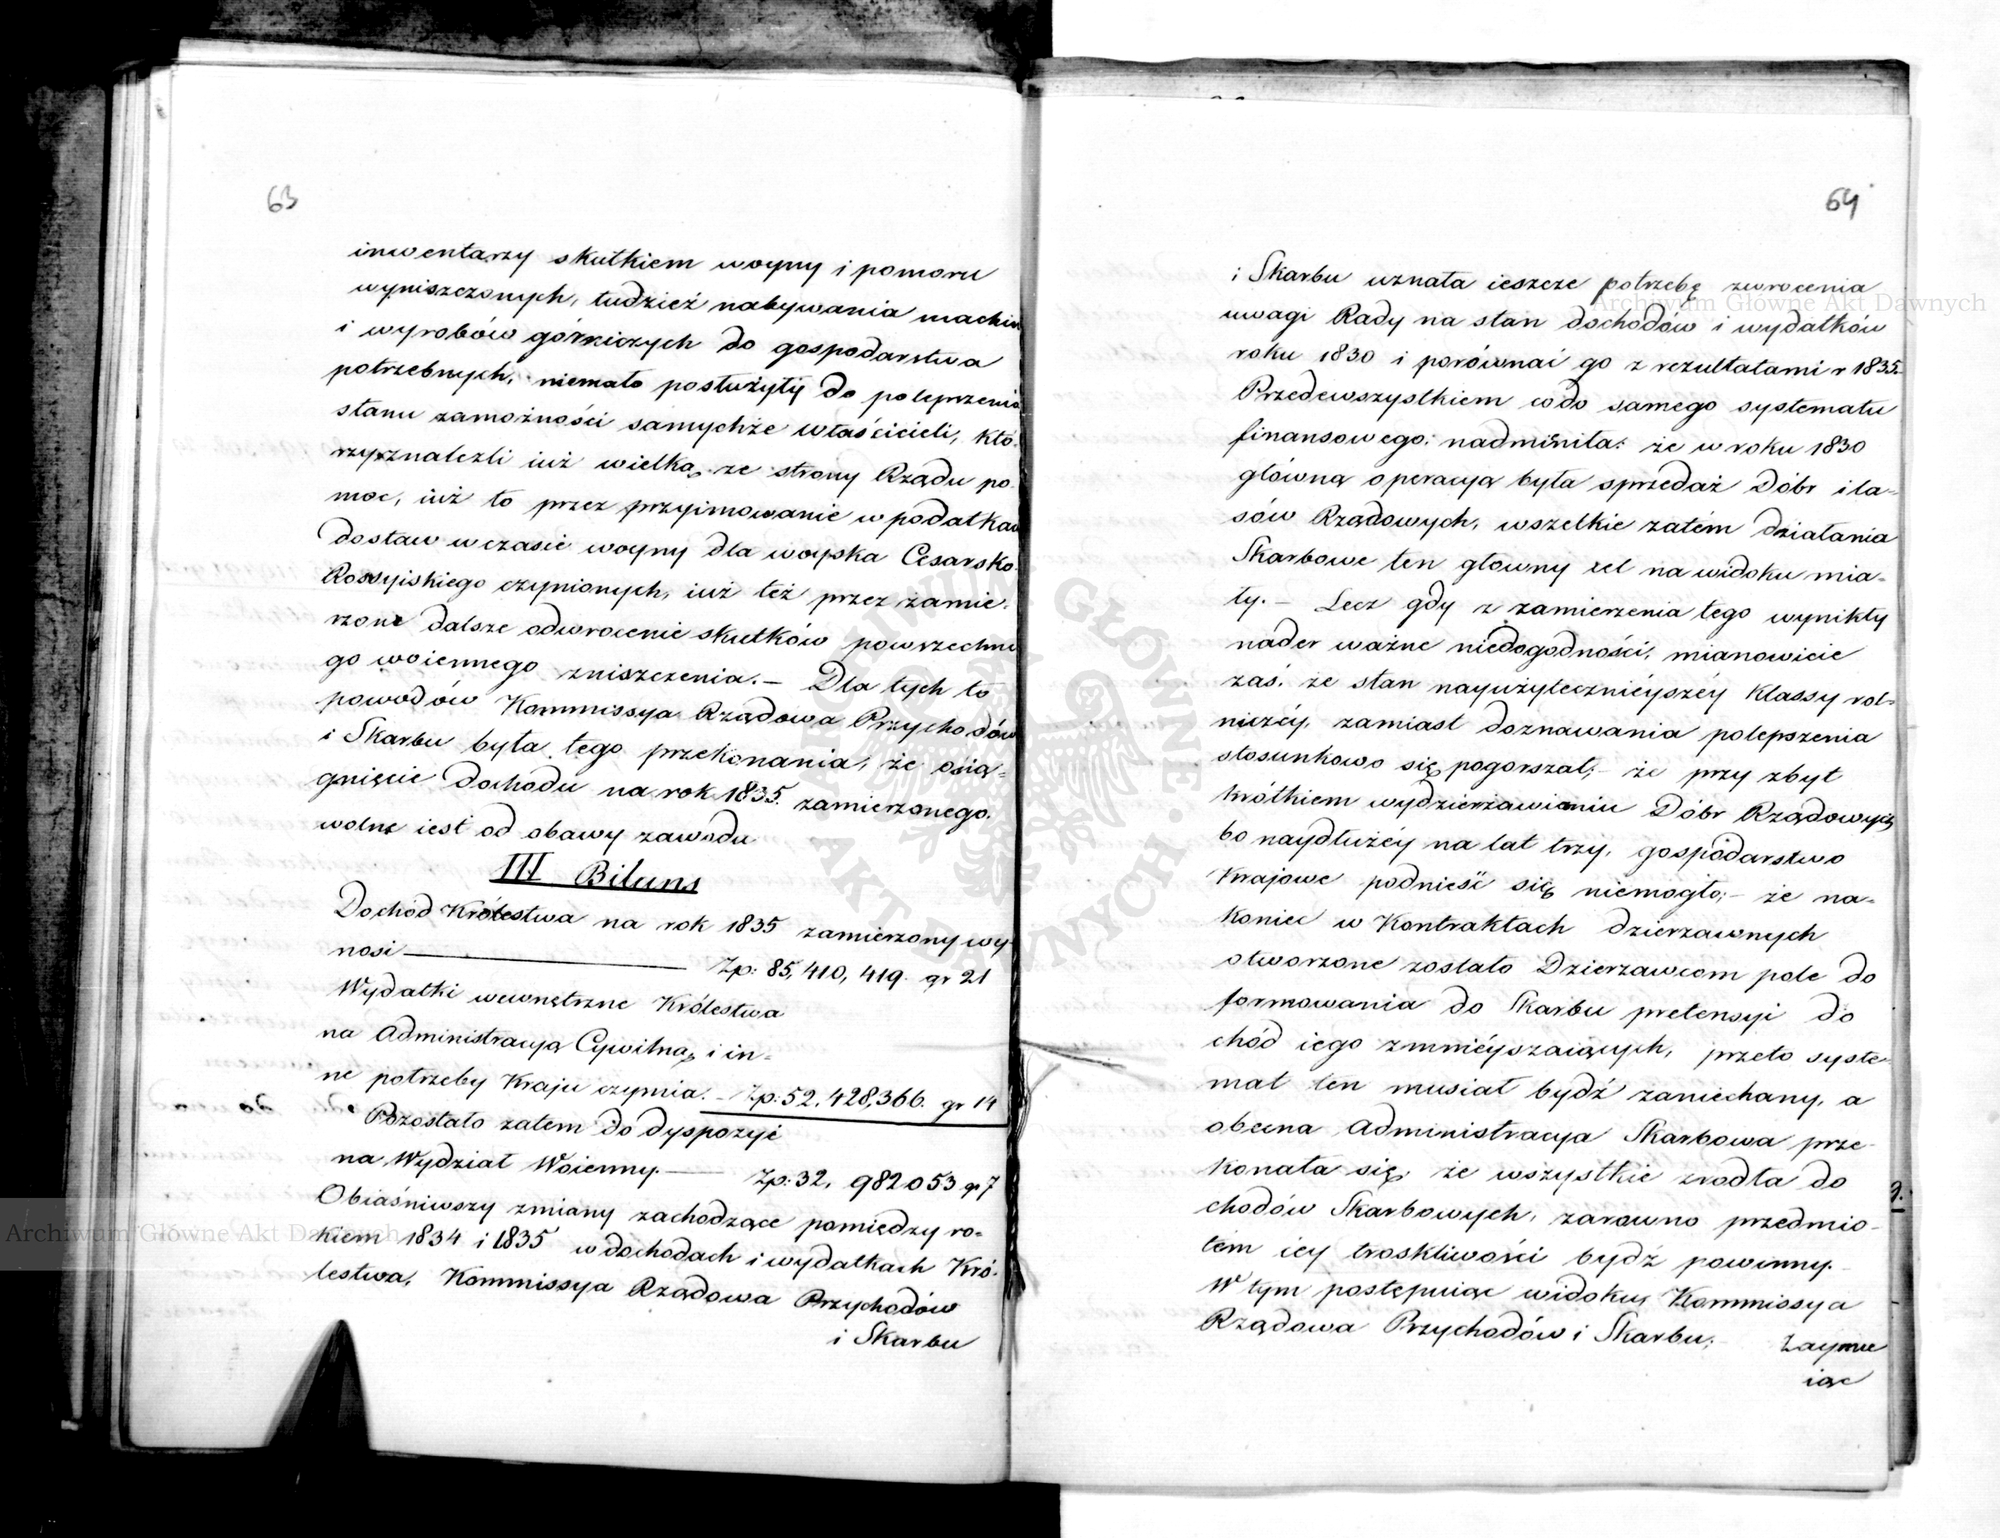 63
inwentarzy skutkiem woyny i pomoru
wyniszczonych, tudzież nabywania machin
i wyrobów górniczych do gospodarstwa
potrzebnych, niemało posłużyły do polepszenia
stanu zamożności samychże właścicieli, któ-
rzy znalezli iuż wielką ze strony Rządu po-
moc, iuż to przez przyimowanie w podatkach
dostaw w czasie woyny dla woyska Cesarsko
Rossyiskiego czynionych, iuż też przez zamie-
rzone dalsze odwrócenie skutków powszechne
go woiennego zniszczenia. – Dla tych to
powodów Kommissya Rządowa Przychodów
i Skarbu była tego przekonania, że osią-
gnięcie dochodu na rok 1835. zamierzonego.
wolne iest od obawy zawodu
III Bilans
Dochód Królestwa na rok 1835 zamierzony wy-
nosi ——— Zp: 85,410,419. gr 21
Wydatki wewnętrzne Królestwa
na Administracyą Cywilną i in-
ne potrzeby Kraju czynią. – Zp: 52,428,366. gr 14
Pozostało zatem do dyspozyć
na Wydział Woienny. —— Zp: 32, 982053 gr 7
Obiaśniwszy zmiany zachodzące pomiędzy ro-
kiem 1834 i 1835 w dochodach i wydatkach Kró-
lestwa, Kommissya Rządowa Przychodów
i Skarbu
64
i Skarbu uznała ieszcze potrzebę zwrocenia
uwagi Rady na stan dochodów i wydatków
roku 1830 i porównać go z rezultatami r 1835.
Przedewszystkiem co do samego systematu
finansowego; nadmieniła: że w roku 1830
główną operacyą była sprzedaż Dóbr i la-
sów Rządowych, wszelkie zatém działania
Skarbowe ten głowny cel na widoku mia-
ły. – Lecz gdy z zamierzenia tego wynikły
nader ważne niedogodności, mianowicie
zaś. że stan nayużytecznieyszéy Klassy rol-
niczéy, zamiast doznawania polepszenia
stosunkowo się pogorszał; – że przy zbyt
krótkiem wydzierżawieniu Dóbr Rządowych
bo naydłużéy na lat trzy, gospodarstwo
Krajowe podnieść się niemogło; – że na-
koniec w Kontraktach dzierzawnych
otworzone zostało Dzierzawcom pole do
formowania do Skarbu pretensyi do
chód iego zmniéyszaiących, przeto syste-
mat ten musiał bydź zaniechany, a
obecna Administracya Skarbowa prze-
konała się, że wszystkie zrodła do
chodów Skarbowych, zarowno przedmio-
tem iey troskliwości bydź powinny. –
W tym postępuiąc widoku, Kommissya
Rządowa Przychodów i Skarbu; – Zaymu
iąc
Archiwum Główne Akt Dawnych
Archiwum Główne Akt Dawnych
ARCHIWUM GŁÓWNE AKT DAWNYCH